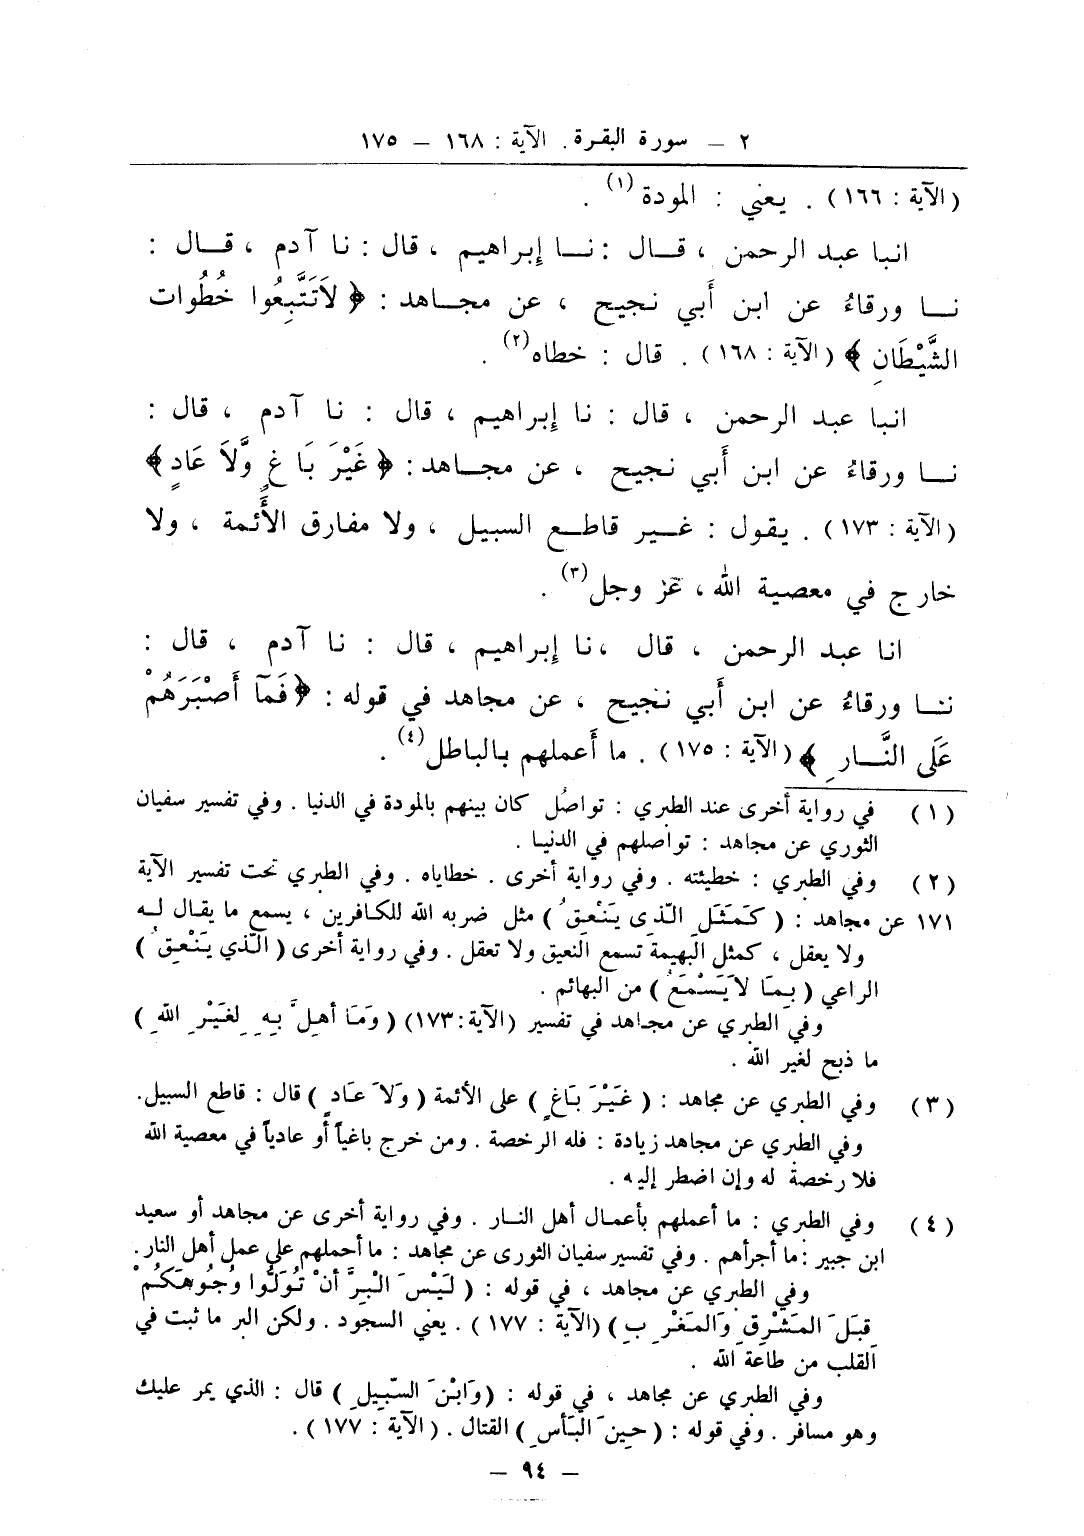 ٢ ــ سورة البقرة. الآية : ١٦٨ ــ ١٧٥
(الآية : ١٦٦) . يعني : المودة (١) .
انبا عبد الرحمن ، قـال : نـا إبراهيم ، قال : نا آدم ، قـال :
نـا ورقاءُ عن ابن أَبي نجيح ، عن مجـاهد : ﴿ لاَتَتَّبِعُوا خُطُوات
الشَّيْطَانِ ﴾ (الآية : ١٦٨) . قال : خطاه (٢) .
انبا عبد الرحمن ، قال : نا إبراهيم ، قال : نا آدم ، قال :
نـا ورقاءُ عن ابن أَبي نجيح ، عن مجـاهد : ﴿ غَيْرَ بَاغٍ وَّلاَ عَادٍ ﴾
(الآية : ١٧٣) . يقول : غـير قاطـع السبيل ، ولا مفارق الأَئمة ، ولا
خارج في معصية الله ، عز وجل (٣) .
انا عبد الرحمن ، قال ، نا إبراهيم ، قال : نا آدم ، قال :
ننـا ورقاءُ عن ابن أَبي نجيح ، عن مجاهد في قوله : ﴿ فَمَآ أَصْبَرَهُمْ
عَلَى النَّـارِ ﴾ (الآية : ١٧٥) . ما أَعملهم بالباطل (٤) .
(١) في رواية أخرى عند الطبري : تواصُل كان بينهم بالمودة في الدنيا . وفي تفسير سفيان
الثوري عن مجاهد : تواصلهم في الدنيـا .
(٢) وفي الطبري : خطيئته . وفي رواية أخرى . خطاياه . وفي الطبري تحت تفسير الآية
١٧١ عن مجاهد : ( كَمَثَلِ الَّذِى يَنْعِقُ ) مثل ضربه الله للكافرين ، يسمع ما يقال لـه
ولا يعقل ، كمثل البهيمة تسمع النعيق ولا تعقل . وفي رواية أخرى ( الَّذي يَنْعِقُ )
الراعي ( بِمَا لاَيَسْمَعُ ) من البهائم .
وفي الطبري عن مجـاهد في تفسير (الآية : ١٧٣) ( وَمَا أهِلَّ بِهِ لِغَيْرِ اللهِ )
ما ذبح لغير الله .
(٣) وفي الطبري عن مجاهد : ( غَيْرَ بَاغٍ ) على الأئمة ( وَلاَ عَادٍ ) قال : قاطع السبيل.
وفي الطبري عن مجاهد زيادة : فله الرخصة . ومن خرج باغياً أو عادياً في معصية الله
فلا رخصة له وإن اضطر إليه .
(٤) وفي الطبري : ما أعملهم بأعمـال أهل النـار . وفي رواية أخرى عن مجاهد أو سعيد
ابن جبير : ما أجرأهم . وفي تفسير سفيان الثورى عن مجاهد : ما أحملهم على عمل أهل النار.
وفي الطبري عن مجاهد ، في قوله : ( لَيْسَ الْبِرَّ أنْ تُوَلُّوا وُجُوهَكُمْ
قِبَلَ المَشْرِقِ وَالمَغْرِبِ ) (الآية : ١٧٧) . يعني السجود . ولكن البر ما ثبت في
القلب من طاعة الله .
وفي الطبري عن مجاهد ، في قوله : (وَابْنَ السَّبِيلِ ) قال : الذي يمر عليك
وهو مسافر . وفي قوله : ( حِينَ البَأسِ ) القتال . (الآية : ١٧٧) .
ــ ٩٤ ــ